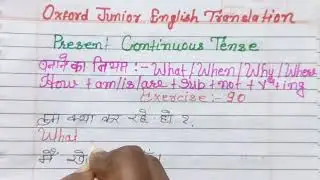 Oxford Junior English Translation
Present Continuous Tense
बनाने का नियम :- What/When/Why/Where
How + am/is/are + sub + not + V⁴ + ing
Exercise:- 90
तुम क्या कर रहे हो ?
What
मैं